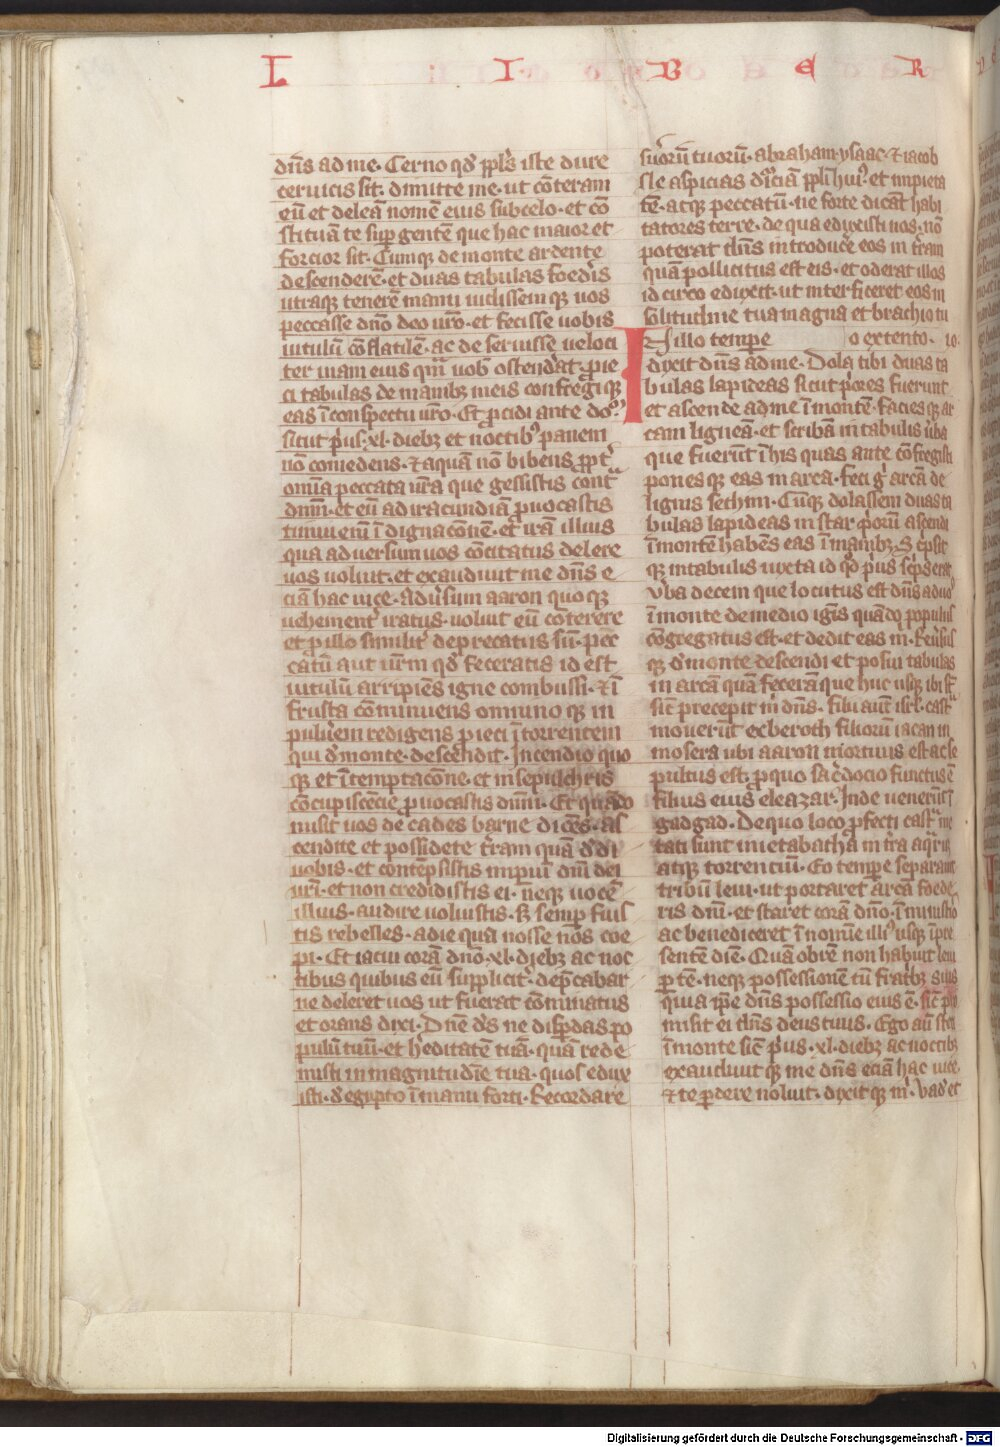 L I B E R
dn̄s ad me. Cerno qđ ppl̄s iste dure
ceruicis sit. dimitte me. ut cōteram
eū et deleā nomē eius sub celo. et cō
stituā te sup gentē que hac maior et
forcior sit. Cumqȝ de monte ardente
descenderē. et duas tabulas foederis
utraqȝ tenerē manu uidissemqȝ uos
peccasse dn̄o deo ur̄o. et fecisse uobis
uitulū cōflatilē. ac deseruisse ueloci
ter uiam eius qm̄ uob ostendat. proie
ci tabulas de manibȝ meis confregiqȝ
eas ī conspectu ur̄o. Et procidi ante dn̄o
sicut prius. xl. diebȝ et noctibꝰ panem
nō comedens. et aquā nō bibens propt
omīa peccata ur̄a que gessistis cont
dnm̄. et eū ad iracundiā prouocastis
timui enī īdignacōnē. et irā illius
qua aduersum uos cōcitatus delere
uos uoluit. et exaudiuit me dn̄s e
ciā hac uice. Adusum aaron quoqȝ
uehement iratus. uoluit eū cōterere
et p illo similit deprecatus sū. pec
catū aut ur̄m qđ feceratis id est
uitulū arripiēs igne combussi. et ī
frusta cōminuens omninoqȝ in
puluerem redigens pieci ī torrentem
qui de monte descendit. Incendio quo
qȝ et ī temptacōne. et in sepulchris
cōcupiscēcie prouocastis dnm̄. Et quādo
misit uos de cades barne dicēs. as
cendite et possidete terram quā dedi
uobis. et contēpsistis impiū dnī dei
ur̄i. et non credidistis ei. neqȝ uocē
illius. audire uoluistis. sȝ semp fuis
tis rebelles. a die qua nosse uos coe
pi. Et iacui corā dn̄o. xl. diebȝ ac noc
tibus quibus eū supplicit. depcabar
ne deleret uos ut fuerat cōminatus
et orans dixi. Dn̄e ds ne disperdas po
pulū tuū. et hereditatē tuā. quā rede
misti in magnitudīe tua. quos edux
isti. de egypto ī manu forti. Recordare
suorū tuorū. abraham. ysaac. et iacob
ne aspicias duriciā ppli huiꝰ. et impieta
tē. atqȝ peccatū. ne forte dicāt habi
tatores terre. de qua eduxisti nos. nō
poterat dn̄s introducere eos in terram
quā pollicitus est eis. et oderat illos
idcirco eduxit. ut interficeret eos in
solitudine tua magna et brachio tu
In illo tempe o extento. 10.
dixit dn̄s ad me. Dola tibi duas ta
bulas lapideas sicut priores fuerunt
et ascende ad me ī montē. faciesqȝ ar
cam ligneā. et scribā in tabulis uba
que fuerūt ī his quas ante cōfregisti
ponesqȝ eas in arca. feci gͥ arcā de
lignis sethim. Cūqȝ dolassem duas ta
bulas lapideas instar priorū ascendi
ī montē habēs eas ī manibȝ. Scripsit
qȝ in tabulis iuxta id qđ prius scripserat
uba decem que locutus est dn̄s ad uos
ī monte de medio ignis quādo populus
cōgregatus est. et dedit eas m. Reuersus
qȝ de monte descendi et posui tabulas
in arcā quā feceram que hucusqȝ ibi st
sic precepit m dn̄s. filii aut isrl. castr
mouerūt ex beroth filiorū iacan in
mosera ubi aaron mortuus est ac se
pultus est. p quo sacerdocio functus ē
filius eius eleazar. Inde uenerūt ī
gadgad. De quo loco profecti castr me
tati sunt in ietabatha in terra aqr̄is
atqȝ torrenciū. Eo tempe separauit
tribū leui. ut portaret arcā foede
ris dnī. et staret corā dn̄o. ī ministio
ac benediceret ī nomīe illiꝰ usqȝ ī pre
sentē diē. Quā obrē non habuit leui
ptē. neqȝ possessionē cū fratribȝ suis
quia ipse dn̄s possessio eius ē. sic pro
misit ei dn̄s deus tuus. Ego aū steti
ī monte sic prius. xl. diebȝ ac noctibȝ
exaudiuitqȝ me dn̄s eciā hac uice.
et te perdere noluit. dixitqȝ m. Vade et
Digitalisierung gefördert durch die Deutsche Forschungsgemeinschaft - DFG